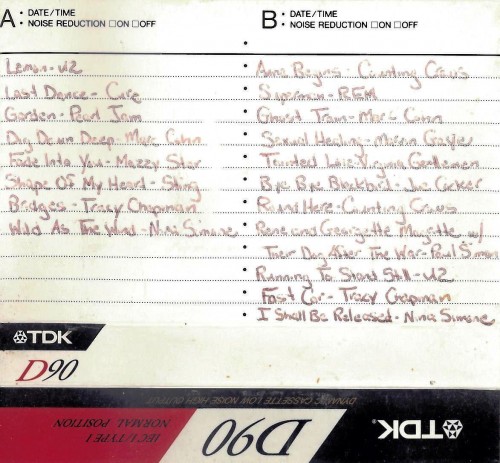 A • DATE/TIME
• NOISE REDUCTION □ON □OFF
Lemon - U2
Last Dance - Cure
Garden - Pearl Jam
Dig Down Deep - Marc Cohn
Fade Into You - Mazzy Star
Shape Of My Heart - Sting
Bridges - Tracy Chapman
Wild As The Wind - Nina Simone
B • DATE/TIME
• NOISE REDUCTION □ON □OFF
Anna Begins - Counting Crows
Superman - REM
Ghost Train - Marc Cohn
Sexual Healing - Marvin Gaye
Tainted Love Gentlemen
Bye Bye Blackbird - Joe Cocker
Round Here - Counting Crows
Rene and Georgette Magritte w/
Their Dog After The War - Paul Simon
Running To Stand Still - U2
Fast Car - Tracy Chapman
• I Shall Be Released - Nina Simone
TDK
D90
DYNAMIC CASSETTE LOW NOISE HIGH OUTPUT
TDK
D90
IEC I/TYPE I
NORMAL POSITION